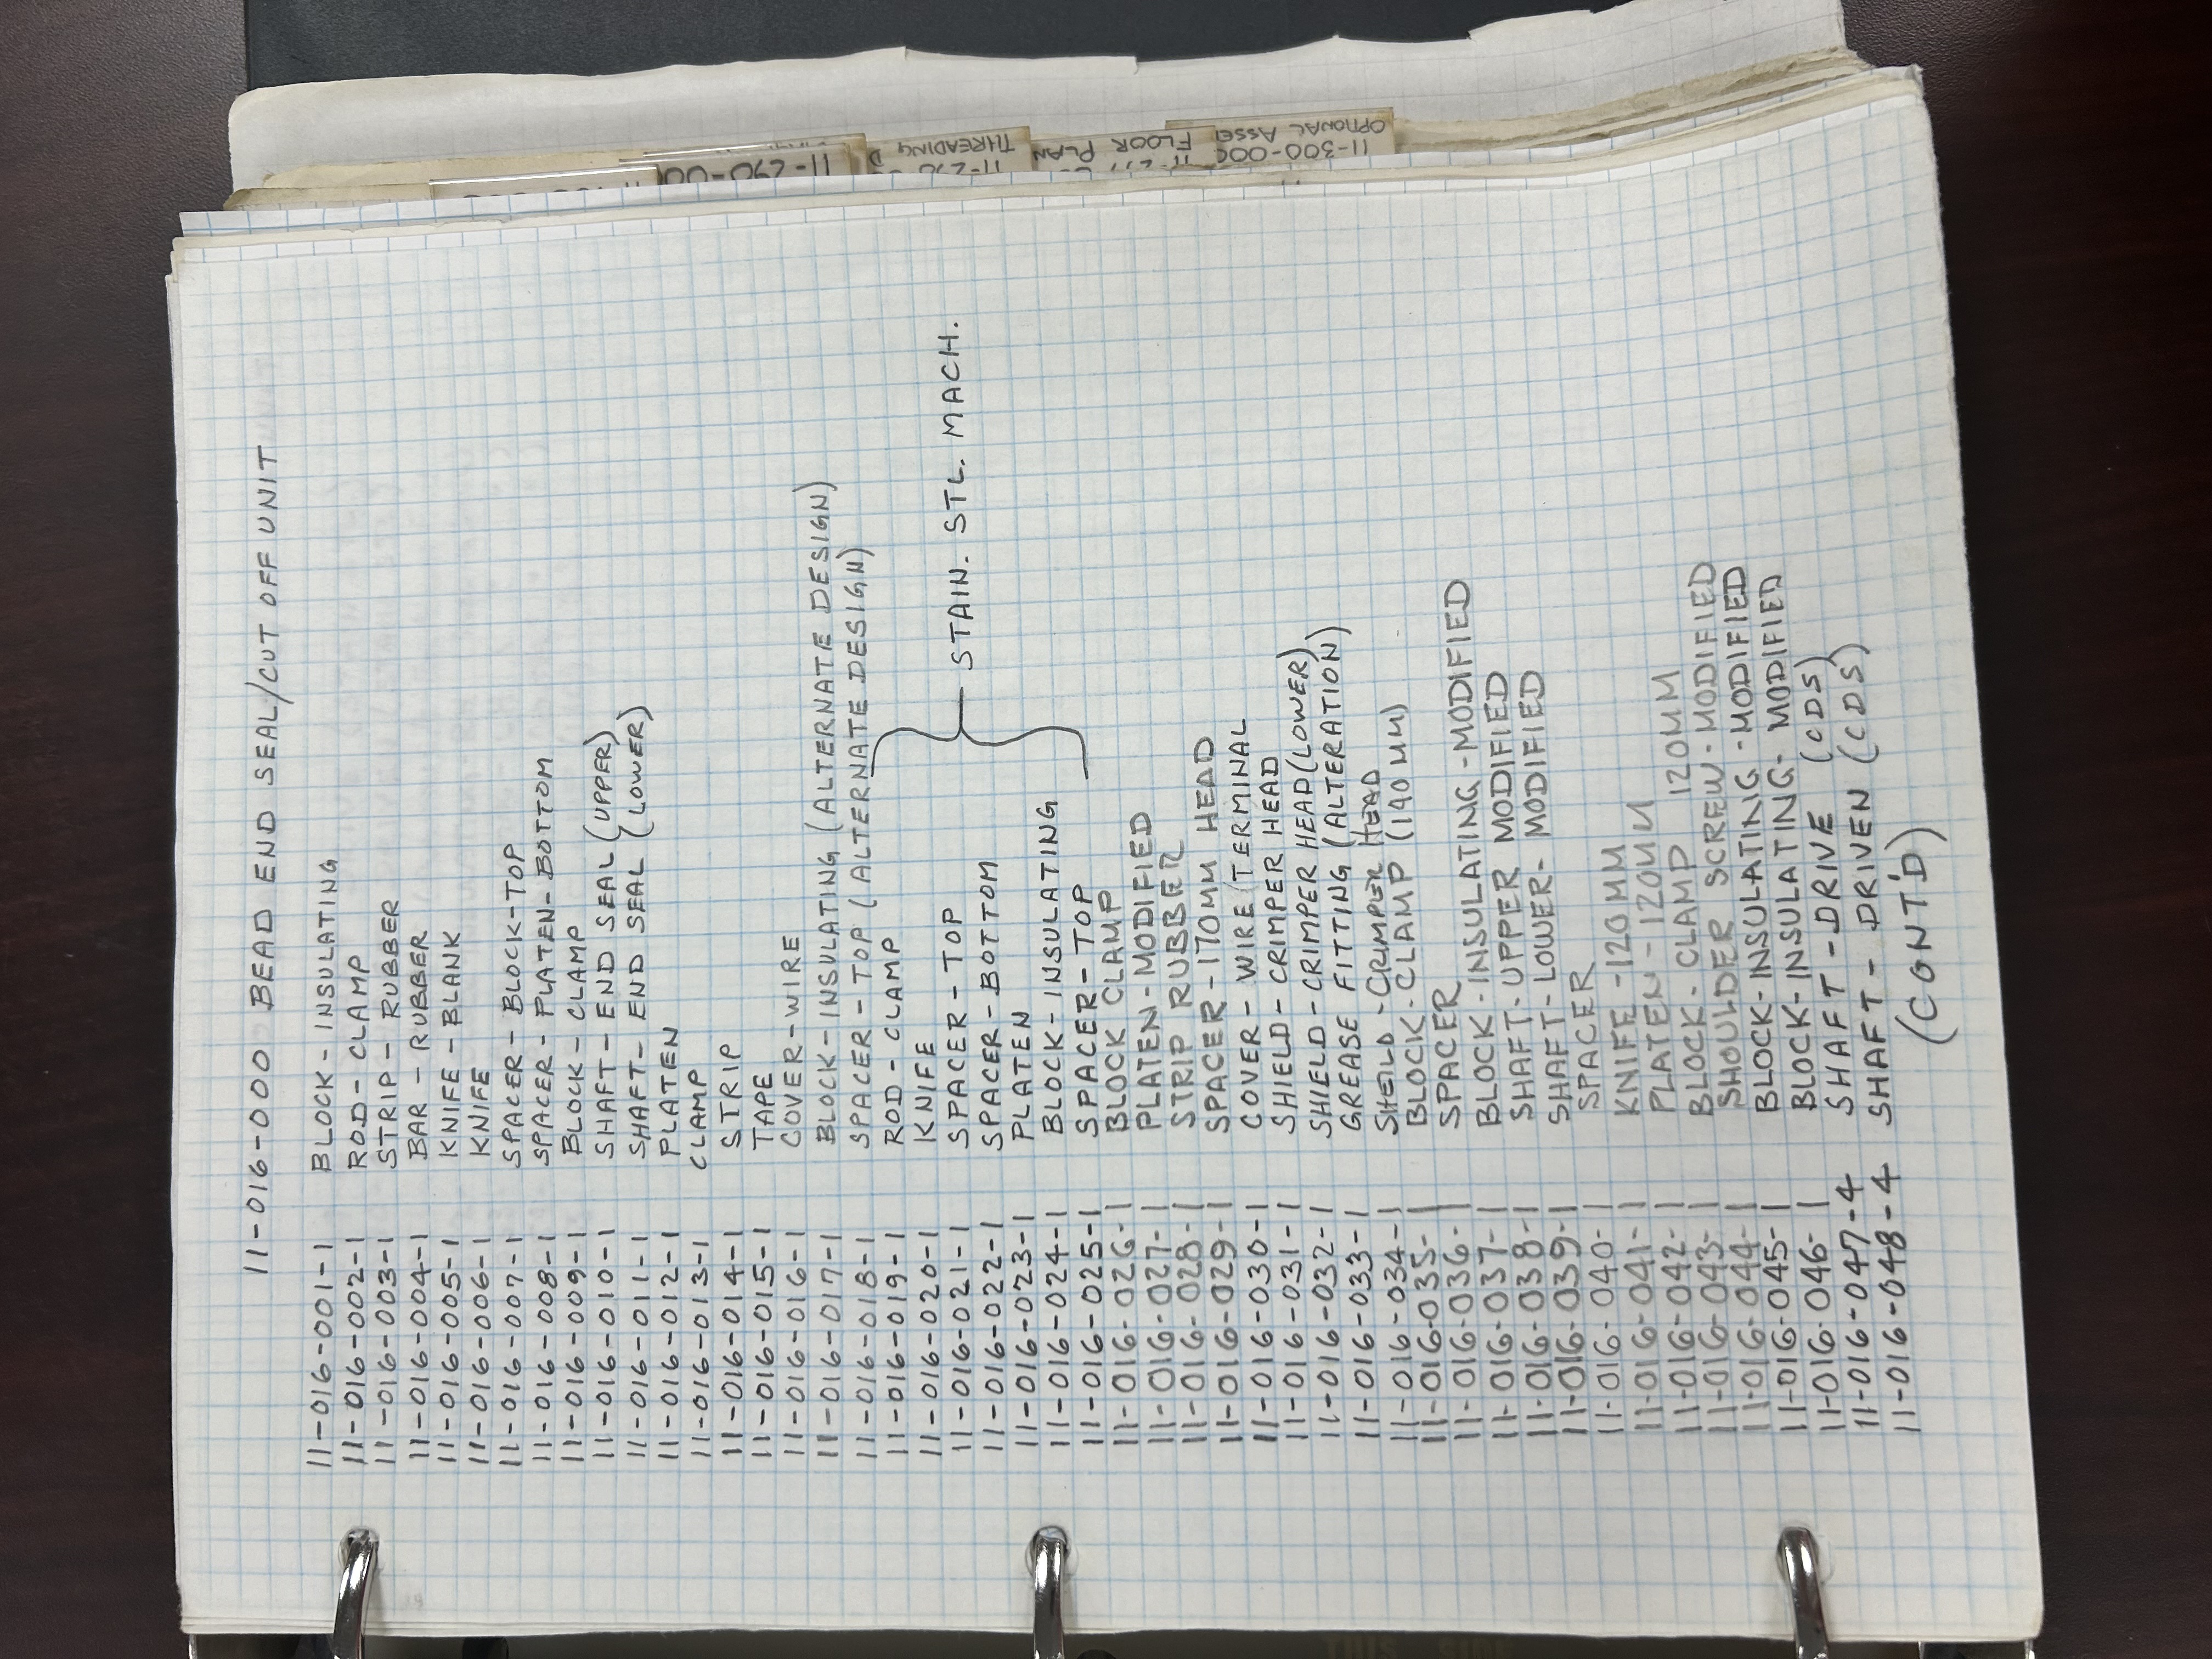 11-016-000 BEAD END SEAL/CUT OFF UNIT
11-016-001-1 BLOCK-INSULATING
11-016-002-1 ROD-CLAMP
11-016-003-1 STRIP-RUBBER
11-016-004-1 BAR-RUBBER
11-016-005-1 KNIFE-BLANK
11-016-006-1 KNIFE
11-016-007-1 SPACER-BLOCK-TOP
11-016-008-1 SPACER-PLATEN-BOTTOM
11-016-009-1 BLOCK-CLAMP
11-016-010-1 SHAFT-END SEAL (UPPER)
11-016-011-1 SHAFT-END SEAL (LOWER)
11-016-012-1 PLATEN
11-016-013-1 CLAMP
11-016-014-1 STRIP
11-016-015-1 TAPE
11-016-016-1 COVER-WIRE
11-016-017-1 BLOCK-INSULATING (ALTERNATE DESIGN)
11-016-018-1 SPACER-TOP (ALTERNATE DESIGN)
11-016-019-1 ROD-CLAMP
11-016-020-1 KNIFE
11-016-021-1 SPACER-TOP
STAIN. STL. MACH.
11-016-022-1 SPACER-BOTTOM
11-016-023-1 PLATEN
11-016-024-1 BLOCK-INSULATING
11-016-025-1 SPACER-TOP
11-016-026-1 BLOCK CLAMP
11-016-027-1 PLATEN-MODIFIED
11-016-028-1 STRIP RUBBER
11-016-029-1 SPACER-170MM HEAD
11-016-030-1 COVER-WIRE/TERMINAL
11-016-031-1 SHIELD-CRIMPER HEAD
11-016-032-1 SHIELD-CRIMPER HEAD (LOWER)
11-016-033-1 GREASE FITTING (ALTERATION)
11-016-034-1 SHEILD-CRIMPER HEAD
11-016-035-1 BLOCK-CLAMP (190 MM)
11-016-036-1 SPACER
11-016-037-1 BLOCK-INSULATING-MODIFIED
11-016-038-1 SHAFT-UPPER MODIFIED
11-016-039-1 SHAFT-LOWER-MODIFIED
11-016-040-1 SPACER
11-016-041-1 KNIFE-120MM
11-016-042-1 PLATEN-120MM
11-016-043-1 BLOCK-CLAMP 120MM
11-016-044-1 SHOULDER SCREW-MODIFIED
11-016-045-1 BLOCK-INSULATING-MODIFIED
11-016-046-1 BLOCK-INSULATING-MODIFIED
11-016-047-4 SHAFT-DRIVE (CDS)
11-016-048-4 SHAFT-DRIVEN (CDS)
(CONT'D)
THREADING
FLOOR PLAN
OPTIONAL